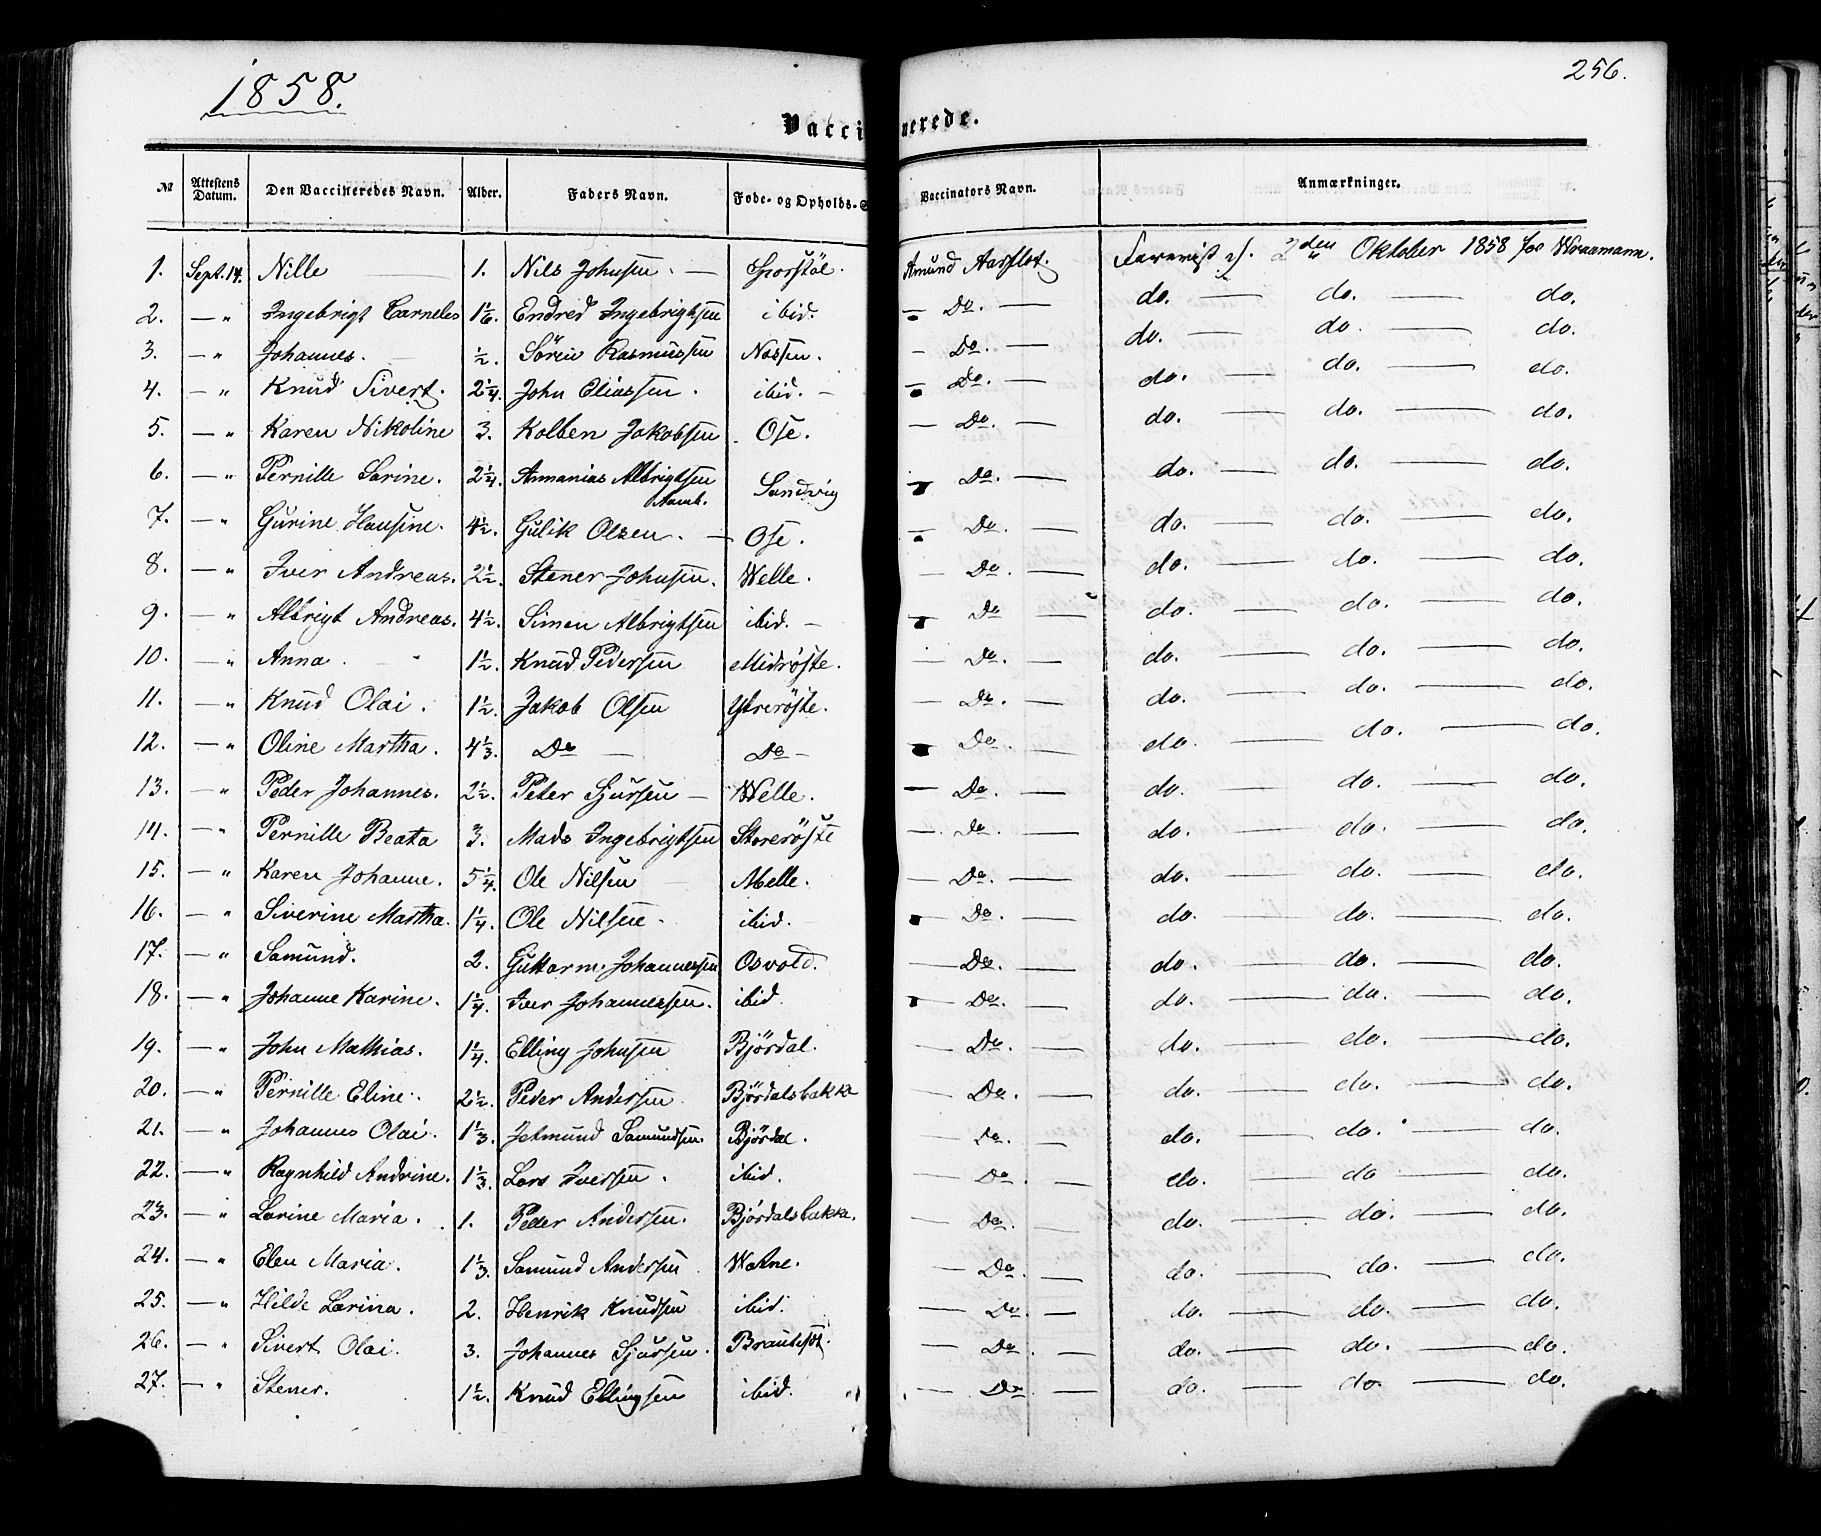 1858.
256.
Vaccinerede.
№ Attestens Datum. Den Vaccineredes Navn. Alder. Faders Navn. Føde- og Opholds-S Vaccinators Navn. Anmærkninger.
1. Sept. 14. Nille 1. Nils Johnsen. — Sporstöl. Amund Aarflot. 2den Oktober 1858 for
2. — " Ingebrigt Corneles 1 1/6 Endred Ingebrigtsen ibid. — Do. — do. — do. — do.
3. — " Johannes. 1/2. Sören Rasmussen Nossen. — Do. — do. — do. — do.
4. — " Knud Sivert. 2 1/4. John Eliassen. ibid. — — Do. — do. — do. — do.
5. — " Karen Nikoline 3. Kolben Jakobsen. Ose. — Do. — do. — do. — do.
6. — " Pernille Sarine. 2 1/4. Annanias Albrigtsen Aamb. Sandvig — Do. — do. — do. — do.
7. — " Gurine Hansine. 4 1/2. Gulik Olsen. — Ose. — Do. — do. — do. — do.
8. — " Iver Andreas. 2 1/2. Stener Johnsen. Welle. — Do. — do. — do. — do.
9. — " Albrigt Andreas. 4 1/2. Simon Albrigtsen ibid. — — Do. — do. — do. — do.
10. — " Anna. 1 1/2. Knud Pedersen Midröste. — Do. — do. — do. — do.
11. — " Knud Olai. 1 1/2. Jakob Olsen Ytreröste. — Do. — do. — do. — do.
12. — " Oline Martha. 4 1/3. Do — Do — — Do. — do. — do. — do.
13. — " Peder Johannes. 2 1/2. Peter Sjursen — Welle. — Do. — do. — do. — do.
14. — " Pernille Beata 3. Mads Ingebrigtsen Storeröste — Do. — do. — do. — do.
15. — " Karen Johanne. 5 1/4. Ole Nilsen — Melle. — Do. — do. — do. — do.
16. — " Siverine Martha. 1 1/4. Ole Nilsen. ibid. — Do. — do. — do. — do.
17. — " Samund. 2. Guttorm. Johannessen Osvold. — Do. — do. — do. — do.
18. — " Johanne Karine. 1 1/4. Iver Johannessen. ibid. — Do. — do. — do. — do.
19. — " John Mathias. 1 1/4. Elling Johnsen Björdal. — Do. — do. — do. — do.
20. — " Pernille Eline. 2 1/2. Peder Andersen Björdalsbakke — Do. — do. — do. — do.
21. — " Johannes Olai. 1 1/3. Jetmund Samundsen. Björdal. — Do. — do. — do. — do.
22. — " Ragnhild Andrine. 1 1/3. Lars Iversen. ibid. — Do. — do. — do — do.
23. — " Larine Maria. 1. Peder Andersen. Björdalsbakke. — Do. — do. — do. — do.
24. — " Elen Maria. 1 1/3. Samund Andersen Watne. — Do. — do. — do. — do.
25. — " Hilde Larina. 2. Henrik Knudsen ibid. — Do — do. — do. — do.
26. — " Sivert Olai. 3. Johannes Sjursen. — Do. — do. — do. — do.
27. — " Stener. 1 1/2. Knud Ellingsen ibid. — Do. — do. — do. — do.